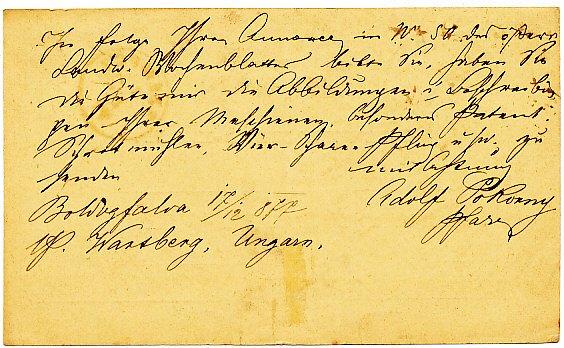 In Folge Ihrer Annonce in No. 50 des österr
Landw. Wochenblattes bitte Sie, haben Sie
die Güte mir die Abbildungen u. Beschreibun
gen Ihrer Maschienen, besonders Patent-
Schrotmühlen, Vier-Schare-Pflug usw. zu
senden mit Achtung
Boldogfalva 17/12 877 Adolf Pokorny
P. Wartberg, Ungarn.